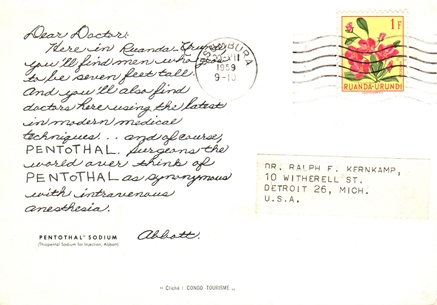 Dear Doctor:
Here in Ruanda-Urundi
you'll find men who grow
to be seven feet tall.
And you'll also find
doctors here using the latest
in modern medical
techniques... and of course,
PENTOTHAL. Surgeons the
world over think of
PENTOTHAL as synonymous
with intravenous
anesthesia.
Abbott.
PENTOTHAL® SODIUM
(Thiopental Sodium for Injection, Abbott)
USUMBURA
1959
1F
RUANDA-URUNDI
DR. RALPH F. KERNKAMP,
10 WITHERELL ST.
DETROIT 26, MICH.
U.S.A.
"Cliché: CONGO TOURISME"